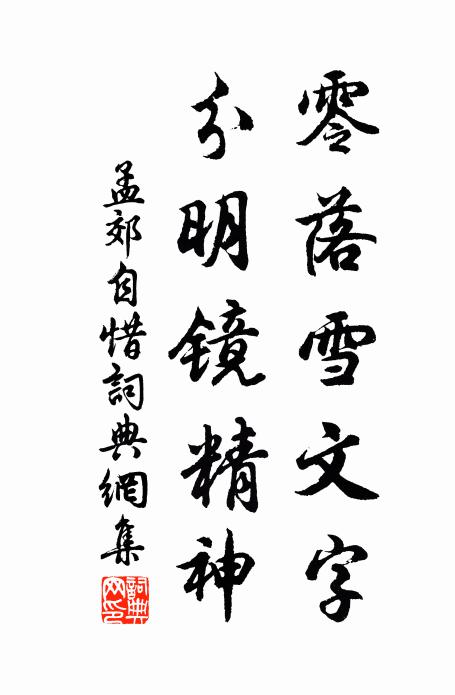 零落雪文字
分明镜精神
孟郊自惜詞典網集
詞典網印